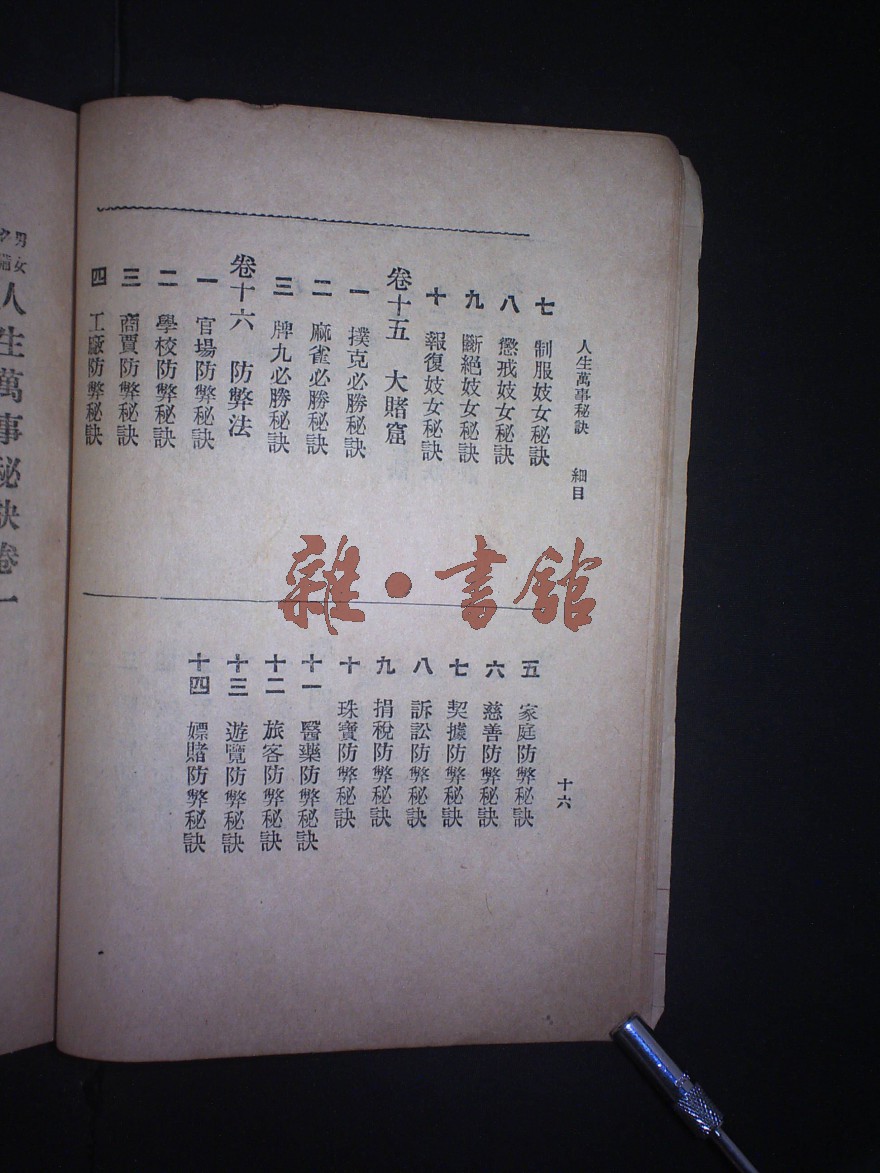 人生萬事秘訣　細目
七　制服妓女秘訣
八　懲戒妓女秘訣
九　斷絕妓女秘訣
十　報復妓女秘訣
卷十五　大賭窟
一　撲克必勝秘訣
二　麻雀必勝秘訣
三　牌九必勝秘訣
卷十六　防弊法
一　官場防弊秘訣
二　學校防弊秘訣
三　商賈防弊秘訣
四　工廠防弊秘訣
十六
五　家庭防弊秘訣
六　慈善防弊秘訣
七　契據防弊秘訣
八　訴訟防弊秘訣
九　捐稅防弊秘訣
十　珠寶防弊秘訣
十一　醫藥防弊秘訣
十二　旅客防弊秘訣
十三　遊覽防弊秘訣
十四　嫖賭防弊秘訣
雜·書館
男女
人生萬事秘訣卷一